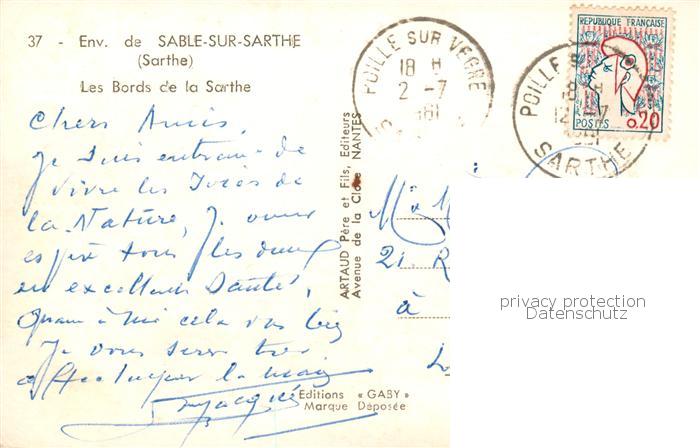 37 - Env. de SABLE-SUR-SARTHE
(Sarthe)
Les Bords de la Sarthe
Chers Amis,
Je suis entrain de
vivre les Joies de
la Nature, Je vous
espère tous les deux
en excellente Santé,
Quant à moi cela va bien
Je vous serre très
la main
Jacques
ARTAUD Père et Fils, Editeurs
Avenue de la Close NANTES
Editions « GABY »
Marque Déposée
POILLÉ SUR VEGRE
18 H
2 -7
1961
REPUBLIQUE FRANÇAISE
POSTES 0,20
POILLE S
18 H
12 -7
1961
SARTHE
21. R
à
privacy protection
Datenschutz